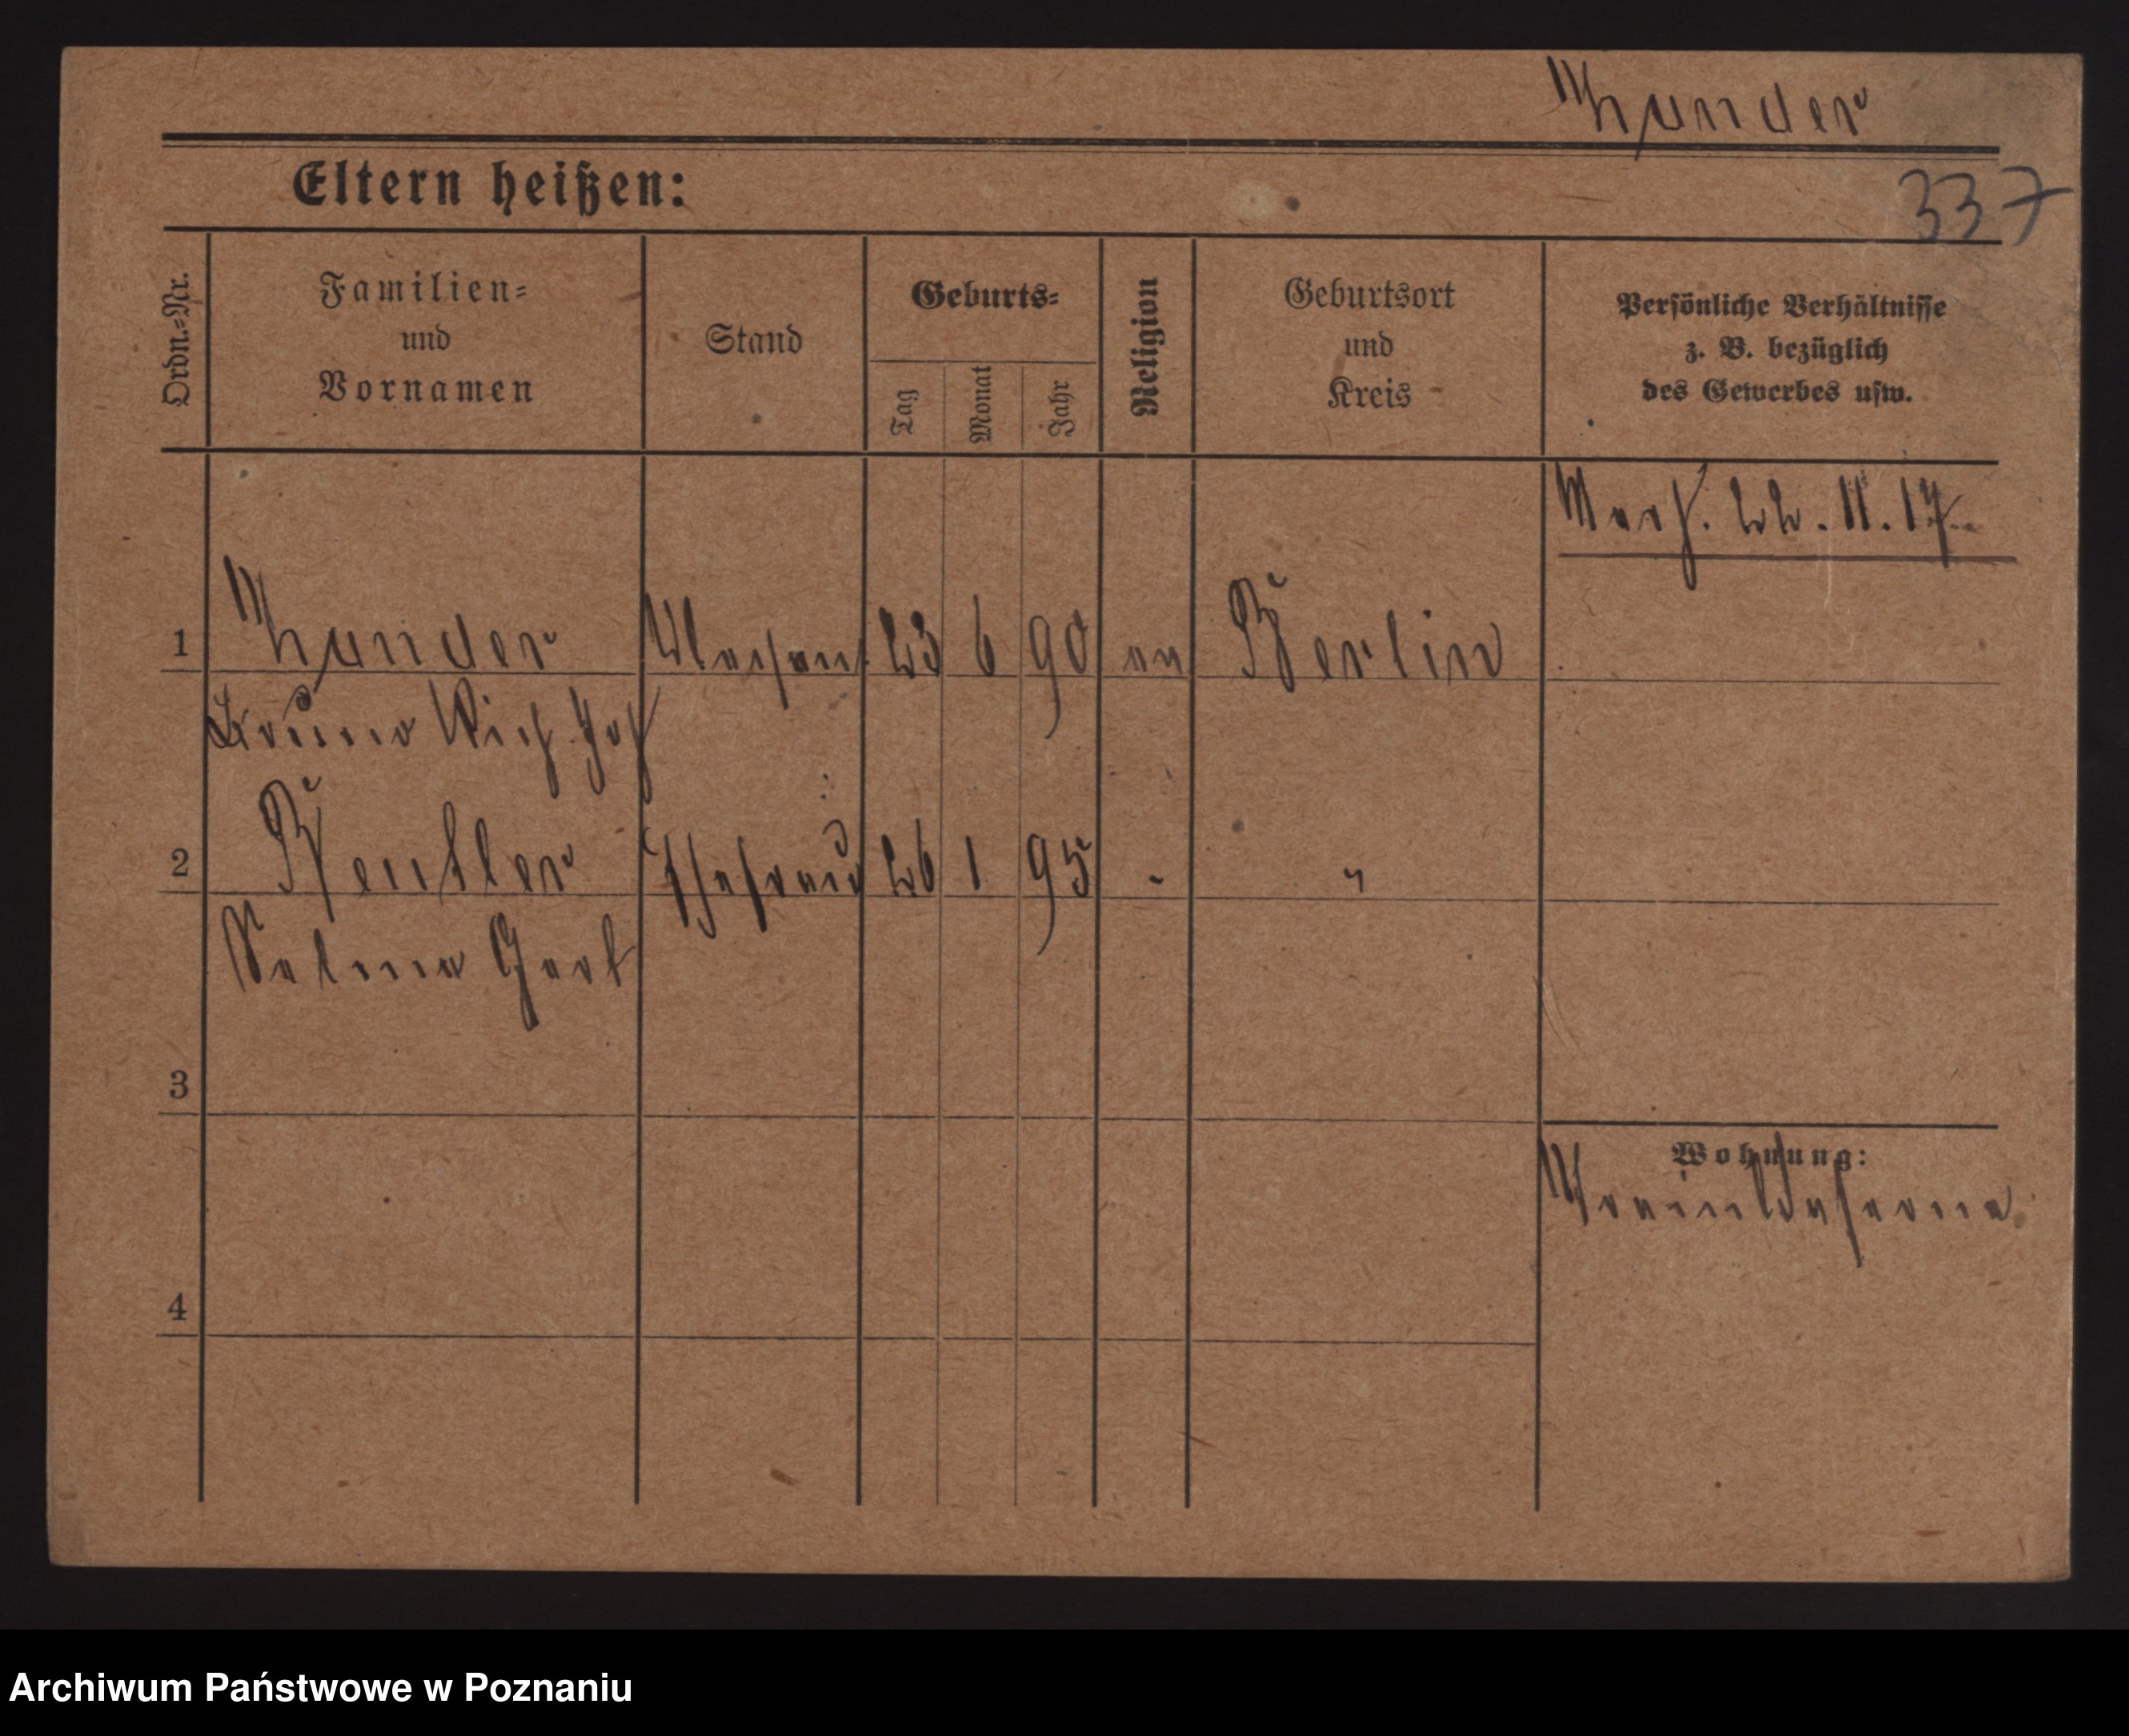 337
Eltern heißen:
Ordn.=Nr.
Familien=
und
Vornamen
Stand
Geburts=
Tag
Monat
Jahr
Religion
Geburtsort
und
Kreis
Persönliche Verhältnisse
z. B. bezüglich
des Gewerbes usw.
22. 11. 17
1
23 6 90 ev Berlin
Bruno Rich. Joh
2
Ehefrau 26 1 95 - "
Selma Gert
3
4
Wohnung:
Archiwum Państwowe w Poznaniu